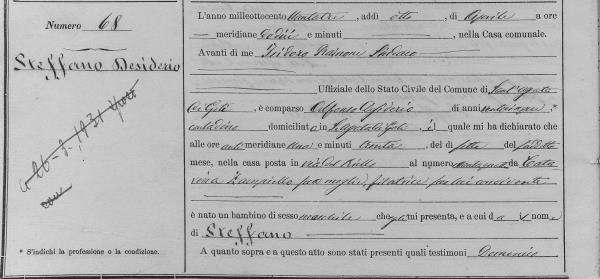 Numero 68
Steffano Desiderio
* S'indichi la professione o la condizione.
L'anno milleottocento novantatre, addì otto, di Aprile a ore
meridiane dodici e minuti , nella Casa comunale.
Avanti di me Isidoro Mainoni Sindaco
Uffiziale dello Stato Civile del Comune di Sant'Agata
dei Goti, è comparso Alfonso Desiderio di anni *
contadino domiciliato in S. Agata dei Goti, il quale mi ha dichiarato che
alle ore ante meridiane una e minuti trenta, del dì sette del suddetto
mese, nella casa posta in via del Riello al numero da Cata
rina Zampiello sua moglie, filatrice seco lui convivente
è nato un bambino di sesso maschile che egli mi presenta, e a cui dà il nome
di Steffano
A quanto sopra e a questo atto sono stati presenti quali testimoni Domenico